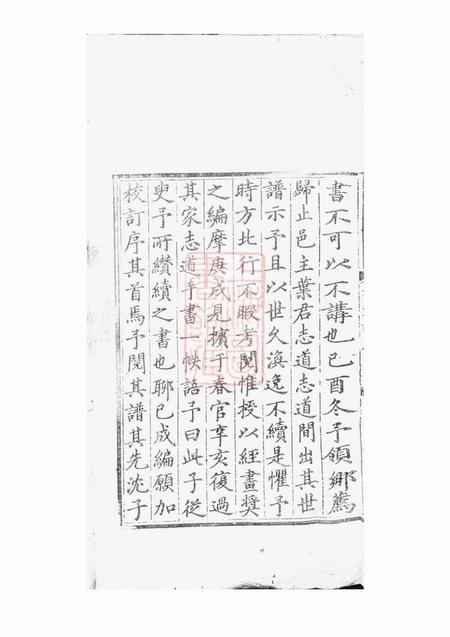 書不可以不講也己酉冬予領鄉薦
歸止邑主葉君志道志道間出其世
譜示予且以世久滇逸不續是懼予
時方北行不暇考閱惟授以經畫奬
之編摩庚戌見擯于春官辛亥復過
其家志道手書一帙語予曰此子從
叟予所纘續之書也聊已成編願加
校訂序其首焉予閱其譜其先沈子